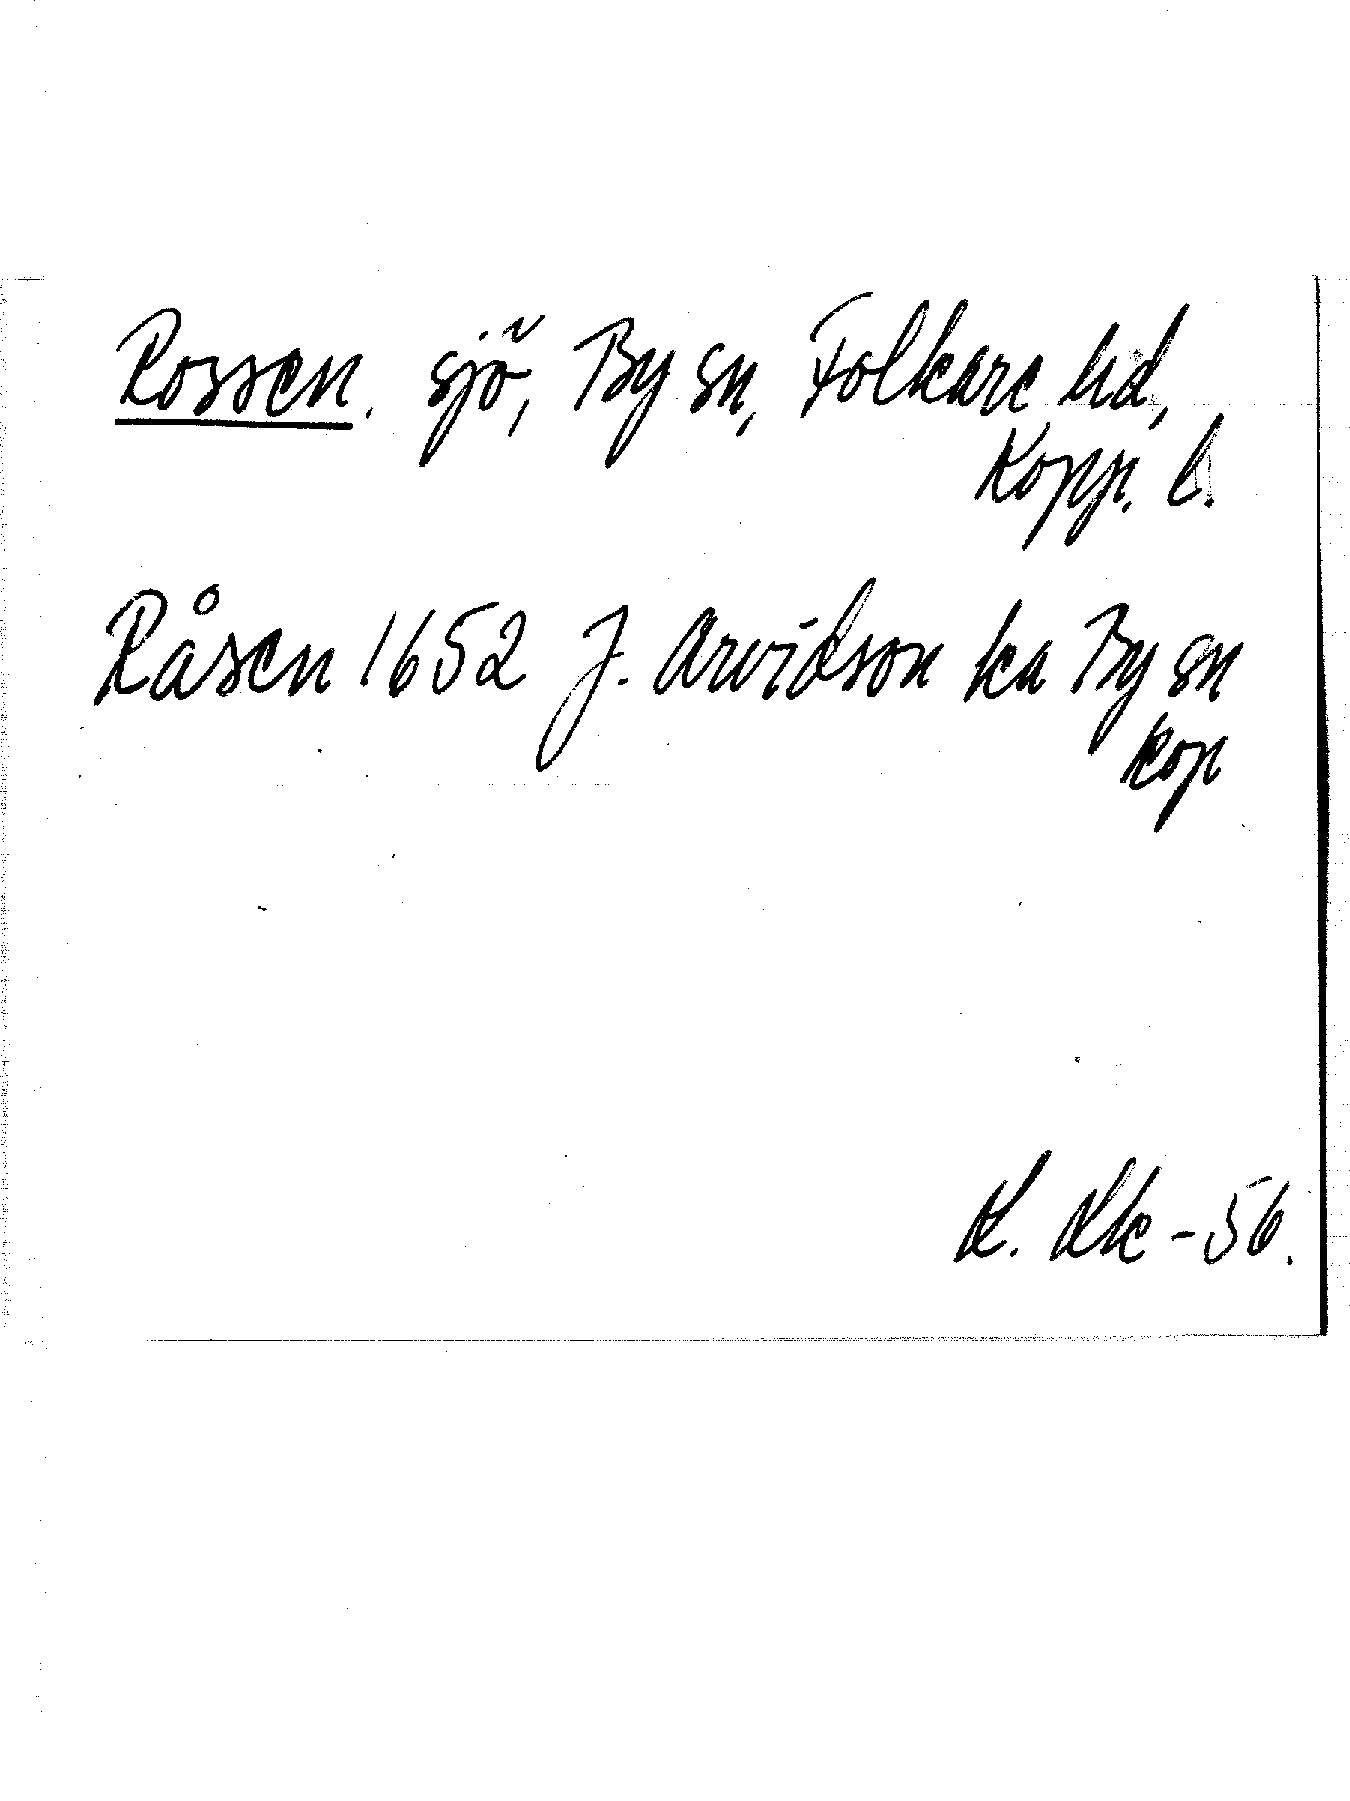 Rossen. sjö, By sn, Folkare hd,
Kopp. l.
Råsen 1652 J. Arvidson ka By sn
kop
-56.